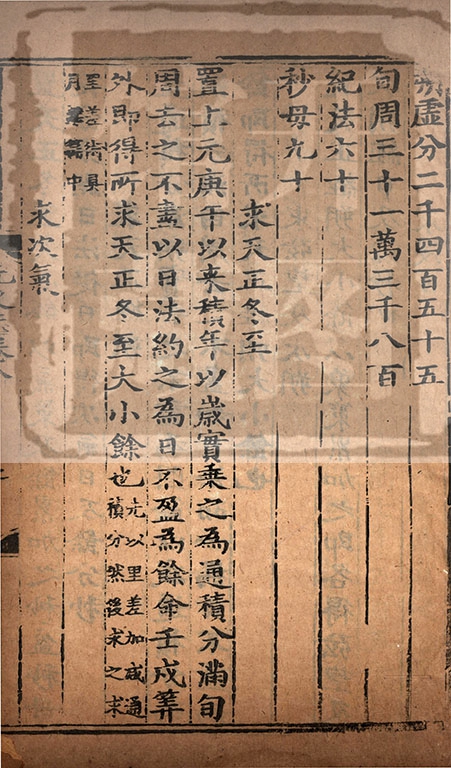 朔虛分二千四百五十五
旬周三十一萬三千八百
紀法六十
秒母九十
求天正冬至
置上元庚午以來積年以歲實乘之為通積分滿旬
周去之不盡以日法約之為日不盈為餘命壬戌筭
外即得所求天正冬至大小餘也先以里差加減通積分然後求之求
里差術具月離篇中
求次氣